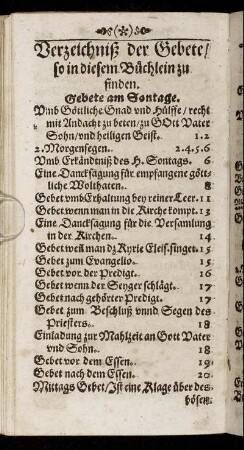 Verzeichniß der Gebete/
so in diesem Büchlein zu
finden.
Gebete am Sontage.
Vmb Göttliche Gnad vnd Hülffe/ recht
mit Andacht zu beten/ zu GOtt Vater
Sohn/ vnd heiligen Geist. 1.2
2. Morgensegen. 2.4.5.6
Vmb Erkändtnuß des H. Sontags. 6
Eine Dancksagung für empfangene gött-
liche Wolthaten. 8
Gebet vmb Erhaltung bey reiner Leer. 11
Gebet wenn man in die Kirche kompt. 13
Eine Dancksagung für die Versamlung
in der Kirchen. 14
Gebet weil man dz Kyrie Eleis. singet. 15
Gebet zum Evangelio. 15
Gebet vor der Predigt. 16
Gebet wenn der Seyger schlägt. 17
Gebet nach gehörter Predigt. 17
Gebet zum Beschluß vnnd Segen des
Priesters. 18
Einladung zur Mahlzeit an Gott Vater
vnd Sohn. 18
Gebet vor dem Essen. 19
Gebet nach dem Essen. 20
Mittags Gebet/ Ist eine Klage über des
bösen